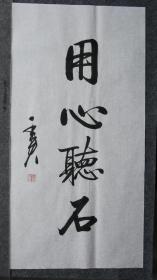 用心聽石